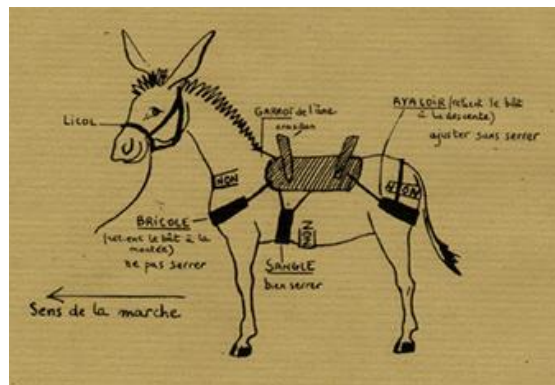 LICOL
GARROT de l'âne
AVALOIR (retient le bât
à la descente)
ajuster sans serrer
NON
NON
BRICOLE
(retient le bât à la
montée)
ne pas serrer
NON
SANGLE
bien serrer
Sens de la marche